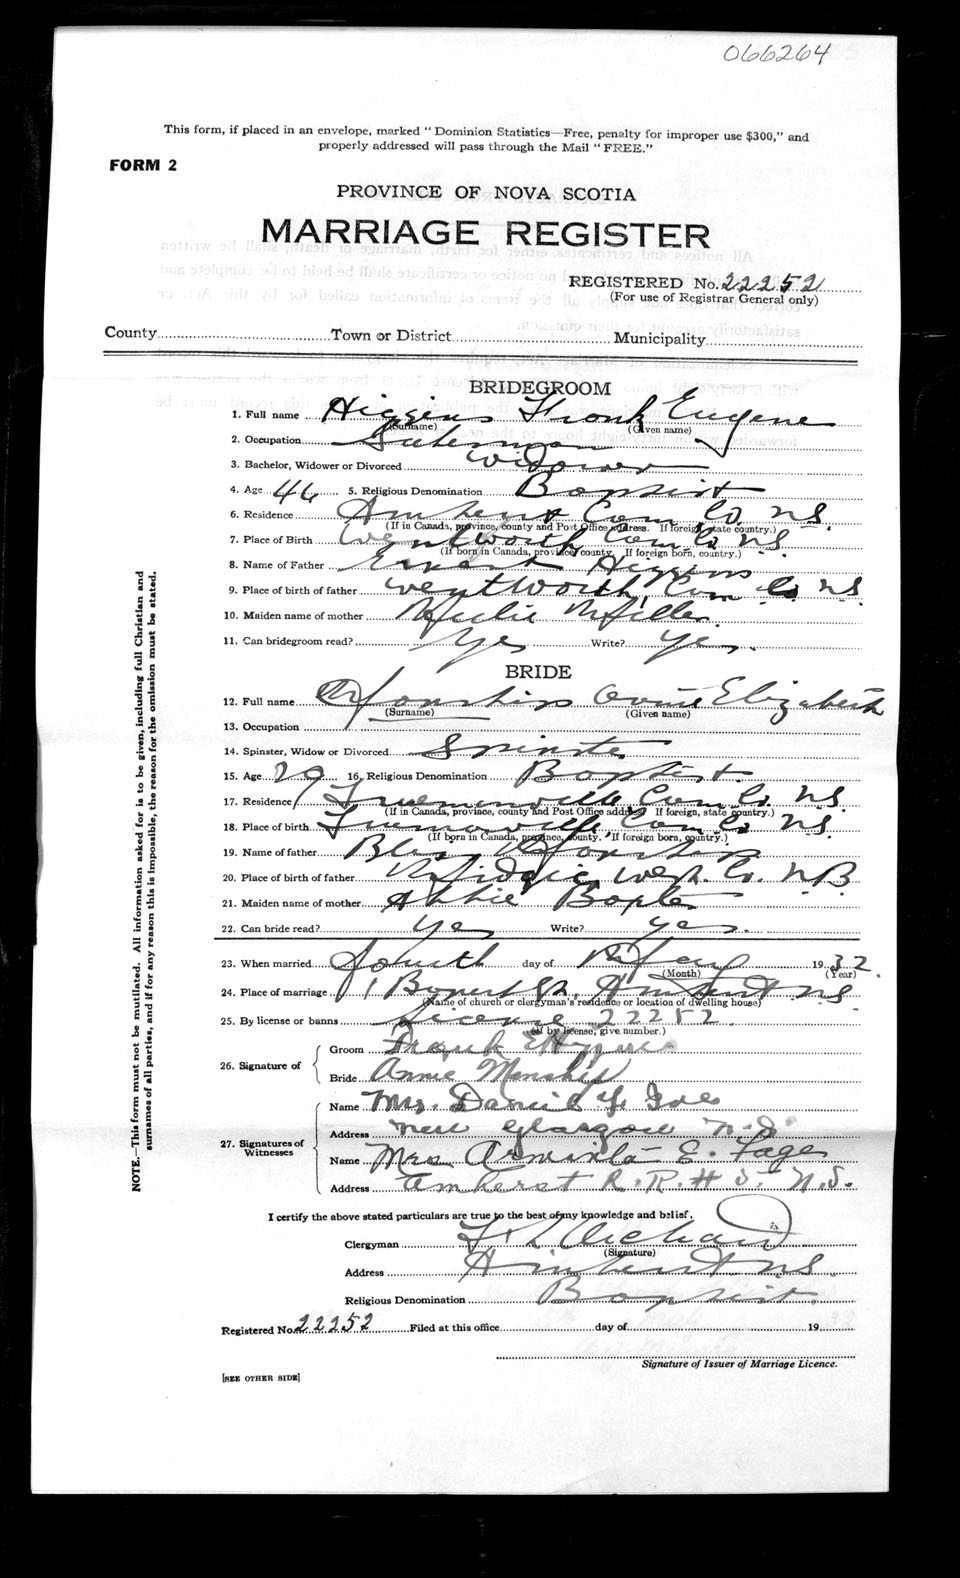 066264
This form, if placed in an envelope, marked "Dominion Statistics—Free, penalty for improper use $300," and
properly addressed will pass through the Mail "FREE."
FORM 2
PROVINCE OF NOVA SCOTIA
MARRIAGE REGISTER
REGISTERED No. 22252
(For use of Registrar General only)
County Town or District Municipality
BRIDEGROOM
1. Full name Higgins Frank Eugene
(Surname) (Given name)
2. Occupation
3. Bachelor, Widower or Divorced Widower
4. Age 46 5. Religious Denomination Baptist
6. Residence Amherst Cum. Co. N.S.
(If in Canada, province, county and Post Office address. If foreign, state country.)
7. Place of Birth Wentworth Cum. Co. N.S.
(If born in Canada, province, county. If foreign born, country.)
8. Name of Father Higgins
9. Place of birth of father Wentworth, Cum Co N.S.
10. Maiden name of mother
11. Can bridegroom read? Yes Write? Yes.
BRIDE
12. Full name Annie Elizabeth
(Surname) (Given name)
13. Occupation
14. Spinster, Widow or Divorced Spinster
15. Age 29 16. Religious Denomination Baptist
17. Residence Truemanville Cum. Co. N.S.
(If in Canada, province, county and Post Office address. If foreign, state country.)
18. Place of birth Truemanville Cum. Co. N.S.
(If born in Canada, province, county. If foreign born, country.)
19. Name of father
20. Place of birth of father Midgic West. Co. N.B
21. Maiden name of mother Abbie
22. Can bride read? Yes Write? Yes.
23. When married day of 1932.
(Month) (Year)
24. Place of marriage St. Amherst N.S
(Name of church or clergyman's residence or location of dwelling house)
25. By license or banns License 22252
(If by license, give number.)
26. Signature of Groom Frank E Higgins
Bride Annie
27. Signatures of Witnesses
Name Mrs. Daniel
Address New Glasgow N.S.
Name Mrs. E.
Address Amherst R.R. N.S.
I certify the above stated particulars are true to the best of my knowledge and belief.
Clergyman
(Signature)
Address Amherst N.S.
Religious Denomination Baptist.
Registered No. 22252 Filed at this office day of 19
Signature of Issuer of Marriage Licence.
[SEE OTHER SIDE]
NOTE.—This form must not be mutilated. All information asked for is to be given, including full Christian and
surnames of all parties, and if for any reason this is impossible, the reason for the omission must be stated.